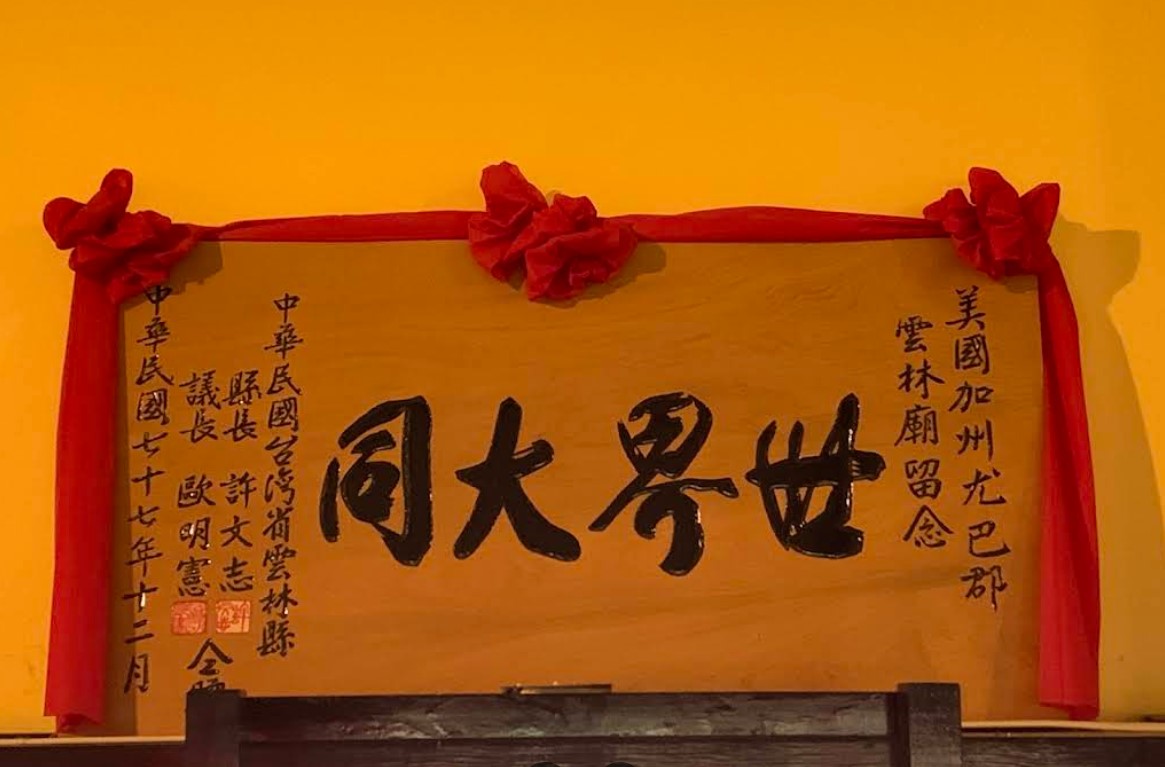 美國加州尤巴郡
雲林廟留念
世界大同
中華民國台湾省雲林縣
縣長 許文志
議長 歐明憲
仝贈
中華民國七十七年十二月